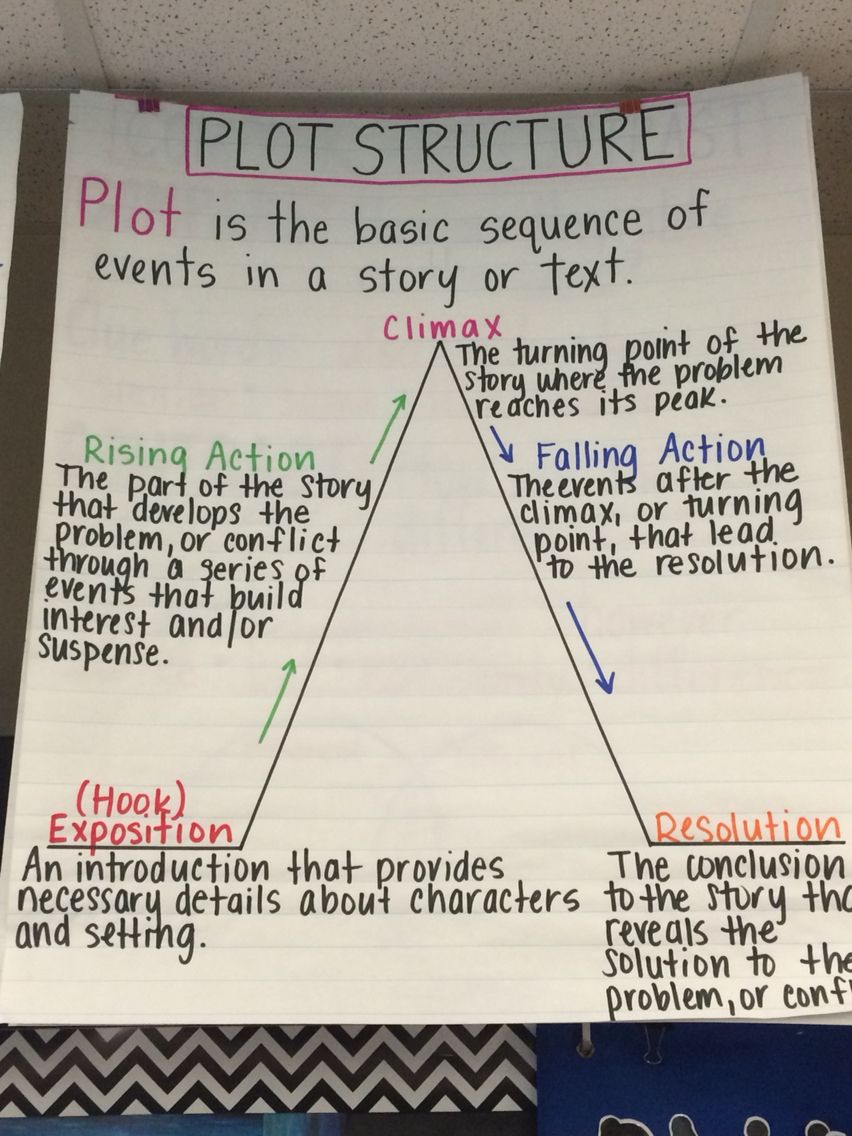 PLOT STRUCTURE
Plot is the basic sequence of
events in a story or text.
Climax
The turning point of the
story where the problem
reaches its peak.
Rising Action
The part of the story
that develops the
problem, or conflict
through a series of
events that build
interest and/or
suspense.
Falling Action
The events after the
climax, or turning
point, that lead
to the resolution.
(Hook)
Exposition
An introduction that provides
necessary details about characters
and setting.
Resolution
The conclusion
to the story
reveals the
solution to the
problem, or